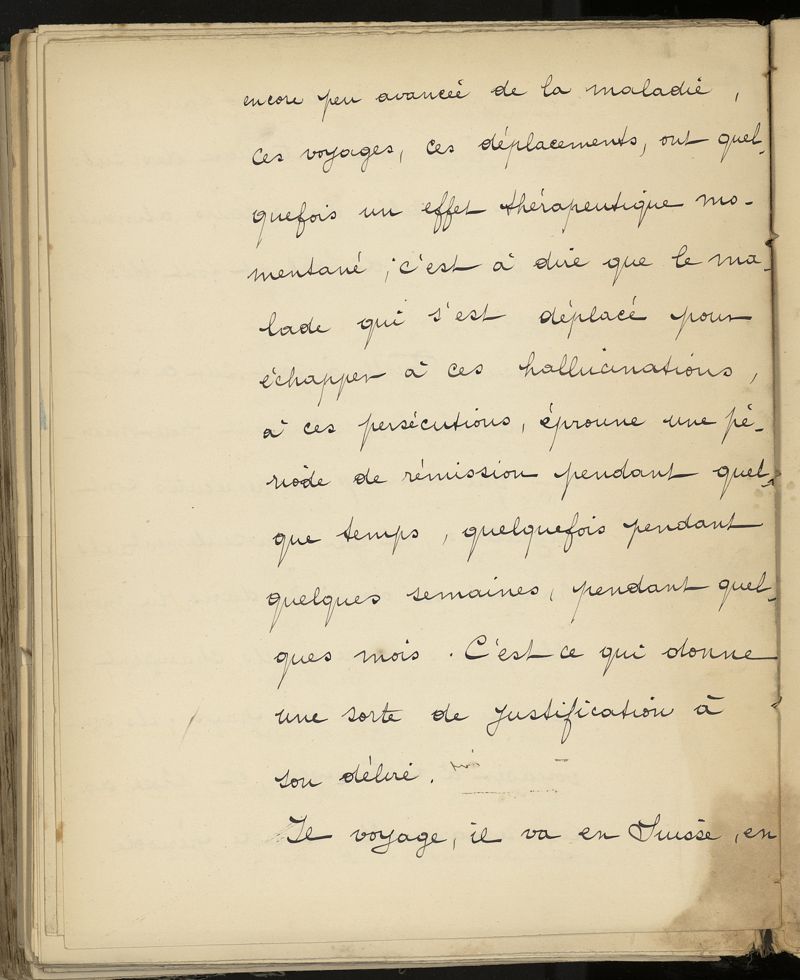 encore peu avancée de la maladie,
ces voyages, ces déplacements, ont quel-
quefois un effet thérapeutique mo-
mentané ; c'est à dire que le ma-
lade qui s'est déplacé pour
échapper à ces hallucinations,
à ces persécutions, éprouve une pé-
riode de rémission pendant quel-
que temps, quelquefois pendant
quelques semaines, pendant quel-
ques mois. C'est ce qui donne
une sorte de justification à
son délire.
Il voyage, il va en Suisse, en